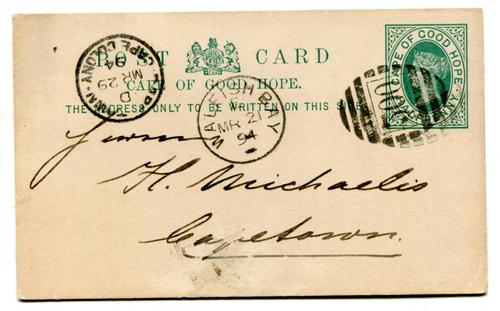 POST CARD
CAPE OF GOOD HOPE.
THE ADDRESS ONLY TO BE WRITTEN ON THIS SIDE
CAPE OF GOOD HOPE
CAPE TOWN, CAPE COLONY
D
MR 29
94
WALFISH BAY
MR 21
94
Herrn
H. Michaelis
Capetown.